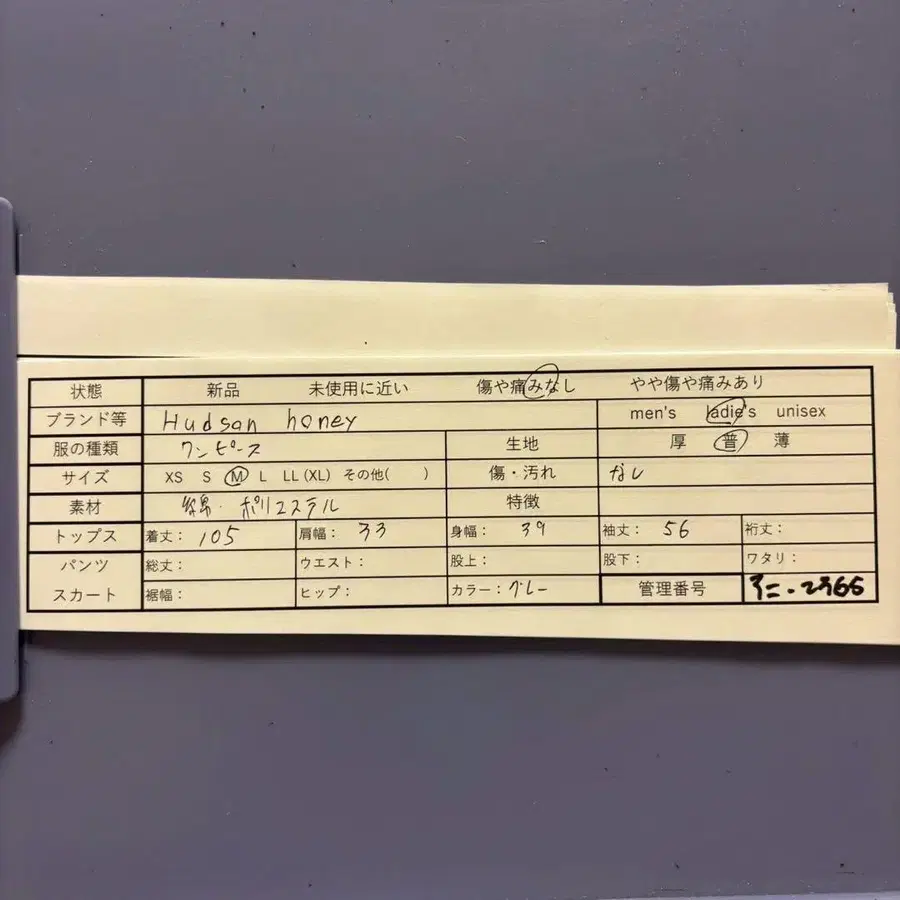 状態 新品 未使用に近い 傷や痛みなし やや傷や痛みあり
ブランド等 Hudson honey men's ladie's unisex
服の種類 ワンピース 生地 厚 普 薄
サイズ XS S M L LL (XL) その他( ) 傷・汚れ なし
素材 綿・ポリエステル 特徴
トップス 着丈: 105 肩幅: 33 身幅: 39 袖丈: 56 裄丈:
パンツ 総丈: ウエスト: 股上: 股下: ワタリ:
スカート 裾幅: ヒップ: カラー: グレー 管理番号